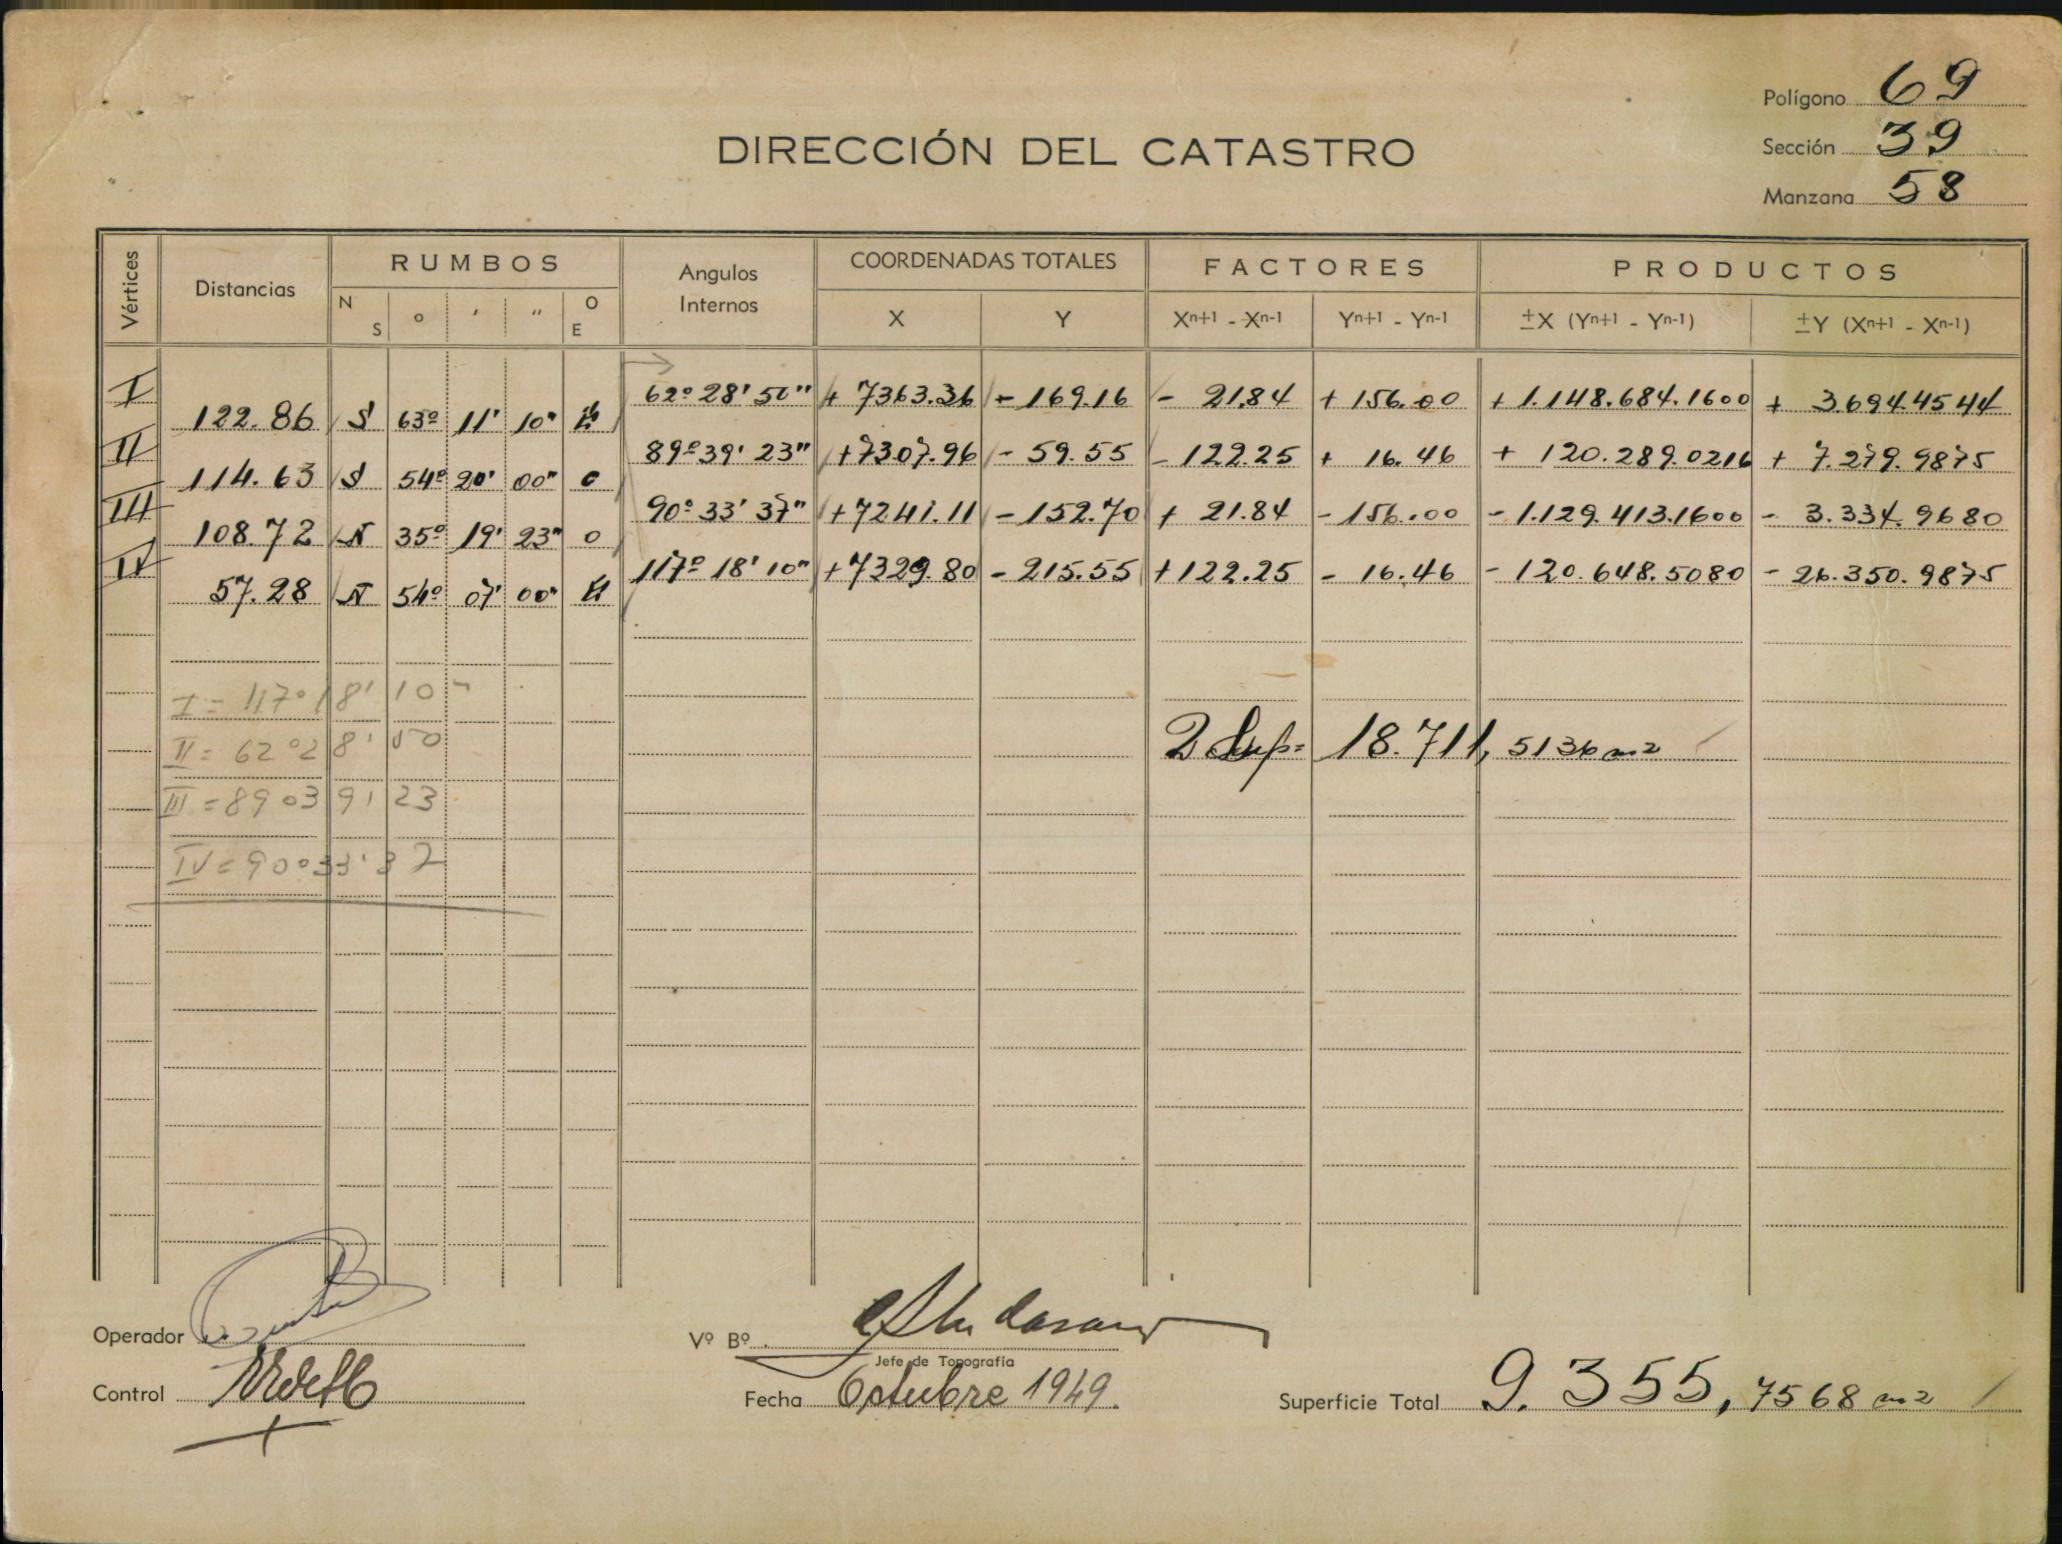 Polígono 69
DIRECCIÓN DEL CATASTRO
Sección 39
Manzana 58
Vértices Distancias RUMBOS Angulos Internos COORDENADAS TOTALES FACTORES PRODUCTOS
N S ° ' " O E X Y Xn+1 - Xn-1 Yn+1 - Yn-1 ±X (Yn+1 - Yn-1) ±Y (Xn+1 - Xn-1)
I 62º 28' 50" + 7363.36 - 169.16 - 21.84 + 156.00 + 1.148.684.1600 + 3.694.4544
122.86 S 63º 11' 10" E
II 89º 39' 23" + 7307.96 - 59.55 - 122.25 + 16.46 + 120.289.0216 + 7.279.9875
114.63 S 54º 20' 00" O
III 90º 33' 37" + 7241.11 - 152.70 + 21.84 - 156.00 - 1.129.413.1600 - 3.334.9680
108.72 N 35º 19' 23" O
IV 117º 18' 10" + 7329.80 - 215.55 + 122.25 - 16.46 - 120.648.5080 - 26.350.9875
57.28 N 54º 07' 00" E
I = 117º 18' 10"
II = 62º 28' 50
III = 89º 39' 23
IV = 90º 33' 37
2 Sup= 18.711,5136 m2
Operador
Vº Bº
Jefe de Topografía
Control
Fecha Octubre 1949.
Superficie Total 9.355,7568 m2